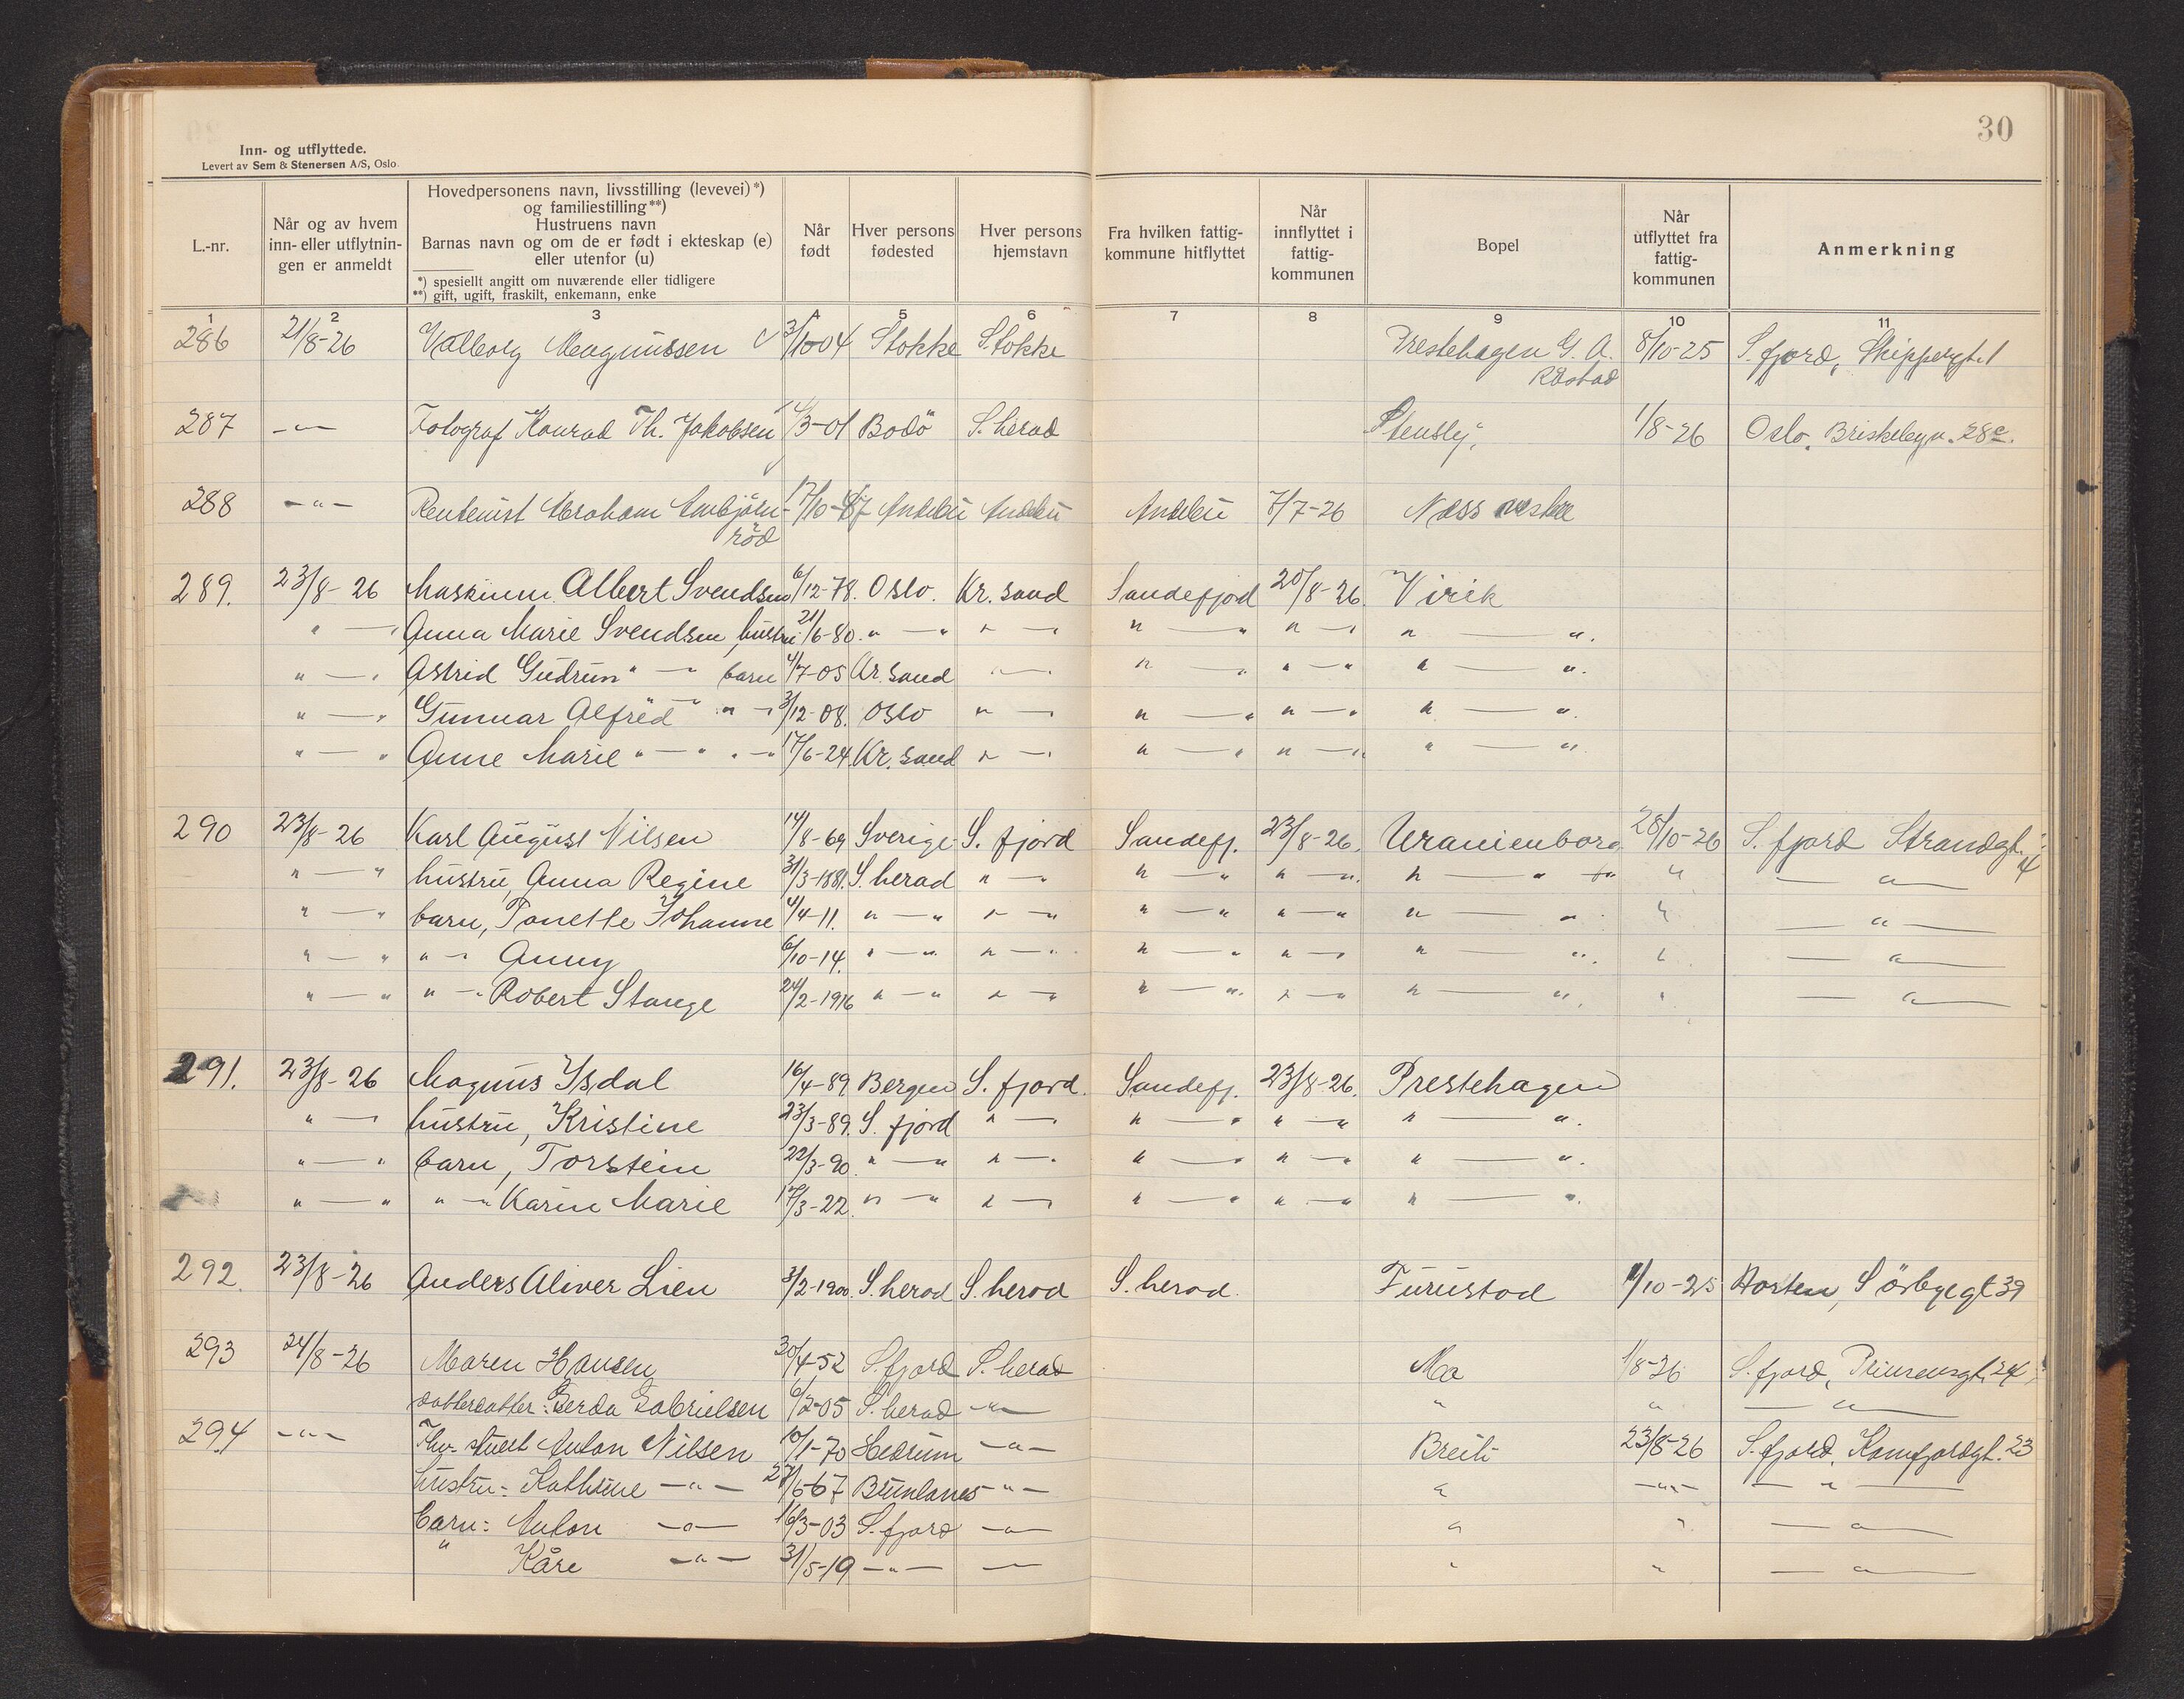 30
Inn- og utflyttede.
Levert av Sem & Stenersen A/S, Oslo.
L.-nr.
Når og av hvem inn- eller utflytnin- gen er anmeldt
Hovedpersonens navn, livsstilling (levevei)*)
og familiestilling**)
Hustruens navn
Barnas navn og om de er født i ekteskap (e)
eller utenfor (u)
*) spesiellt angitt om nuværende eller tidligere
**) gift, ugift, fraskilt, enkemann, enke
Når født
Hver persons fødested
Hver persons hjemstavn
Fra hvilken fattig- kommune hitflyttet
Når innflyttet i fattig- kommunen
Bopel
Når utflyttet fra fattig- kommunen
Anmerkning
1 2 3 4 5 6 7 8 9 10 11
286 21/8-26 Valborg Magnussen 3/10-04 Stokke Stokke Prestehagen G. A. 8/10-25 S. fjord, Skippergt. 1
Råstad
287 -"- Fotograf Konrad Th. Jakobsen /3-01 Bodö S. herad 1/8-26 Oslo, Briskebyv. 28c.
288 -"- Rentenist Abraham Anbjörn- 17/10- Andebu Andebu Andebu 7/7-26 Næss vestre
röd
289. 23/8-26 Maskinm. Albert Svendsen 6/12-78. Oslo. Kr. sand Sandefjord 20/8-26. Virik
" — " Anna Marie Svendsen, hustru 21/6-80. " — " " — " " — " " — " " — ".
" — " Astrid Gudrun " — " barn 4/7-05 Kr. sand " — " " — " " — " " — ".
" — " Gunnar Alfred " — " " — " 3/12-08. Oslo " — " " — " " — " " — ".
" — " Anne Marie " — " " — " 17/6-24. Kr. sand " — " " — " " — " " — "
290 23/8-26 Karl August Nilsen 14/8-69 Sverige S. fjord Sandefj. 23/8-26. Uranienborg 28/10-26 S. fjord Strandgt.
4
" — " hustru, Anna Regine 31/3-1881. S. herad " — " " — " " — " " — " " — " —
" — " barn, Tonette Johanne 4/4-11. " — " " — " " — " " — " " — " " — " —
" — " " — " Anny 6/10-14. " — " " — " " — " " — " " — " " — " —
" — " " — " Robert Stange 24/2-1916 " — " " — " " — " " — " " — " " — " —
291. 23/8-26 Magnus Ysdal 16/4-89 Bergen S. fjord. Sandefj. 23/8-26. Prestehagen
" — " hustru, Kristine 23/3-89. S. fjord " — " " — " " — " " — ".
" — " barn, Torstein 22/3-20. " — " " — " " — " " — " " — ".
" — " " — " Karin Marie 17/3-22. " — " " — " " — " " — " " — ".
292. 23/8-26 Anders Aliver Lien 3/2-1900. S. herad S. herad S. herad. Furustad /10-25 Horten, Sörbyegt 39
293 24/8-26 Maren Hansen 30/4-52 S. fjord S. herad Mo 1/8-26 S. fjord, Prinsensgt. 24
datterdatter: Gerda Gabrielsen 6/2-05 S. herad -"- " " — " —
294 -"- Anton Nilsen 10/1-70 Hedrum -"- Breili 23/8-26 S. fjord, Kamfjordgt. 23
hustru: Kathrine -"- 27/6-67 Brunlanes -"- " -"- — " —
Barn: Anton -"- 16/3-03 S. fjord -"- " " — " —
" Kåre -"- 31/5-19 -"- — " " — " —